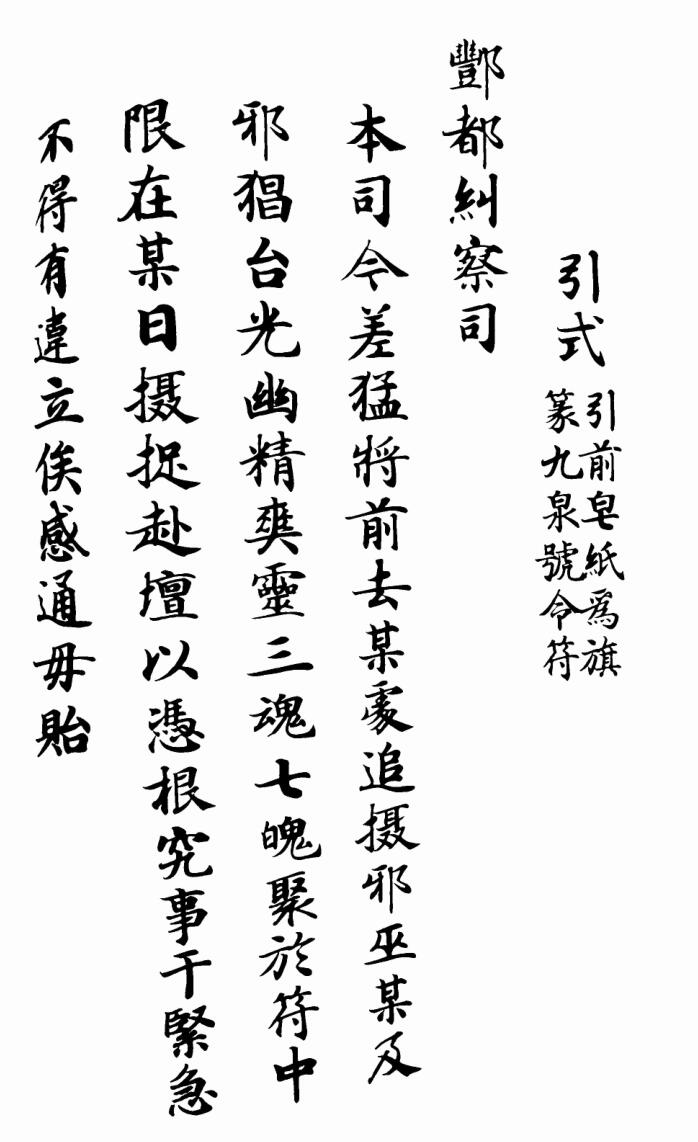 引式
引前皂紙爲旗
篆九泉號令符
酆都糾察司
本司令差猛將前去某處追摄邪巫某及
邪猖台光幽精爽靈三魂七魄聚於符中
限在某日摄捉赴壇以憑根究事干緊急
不得有違立俟感通毋貽